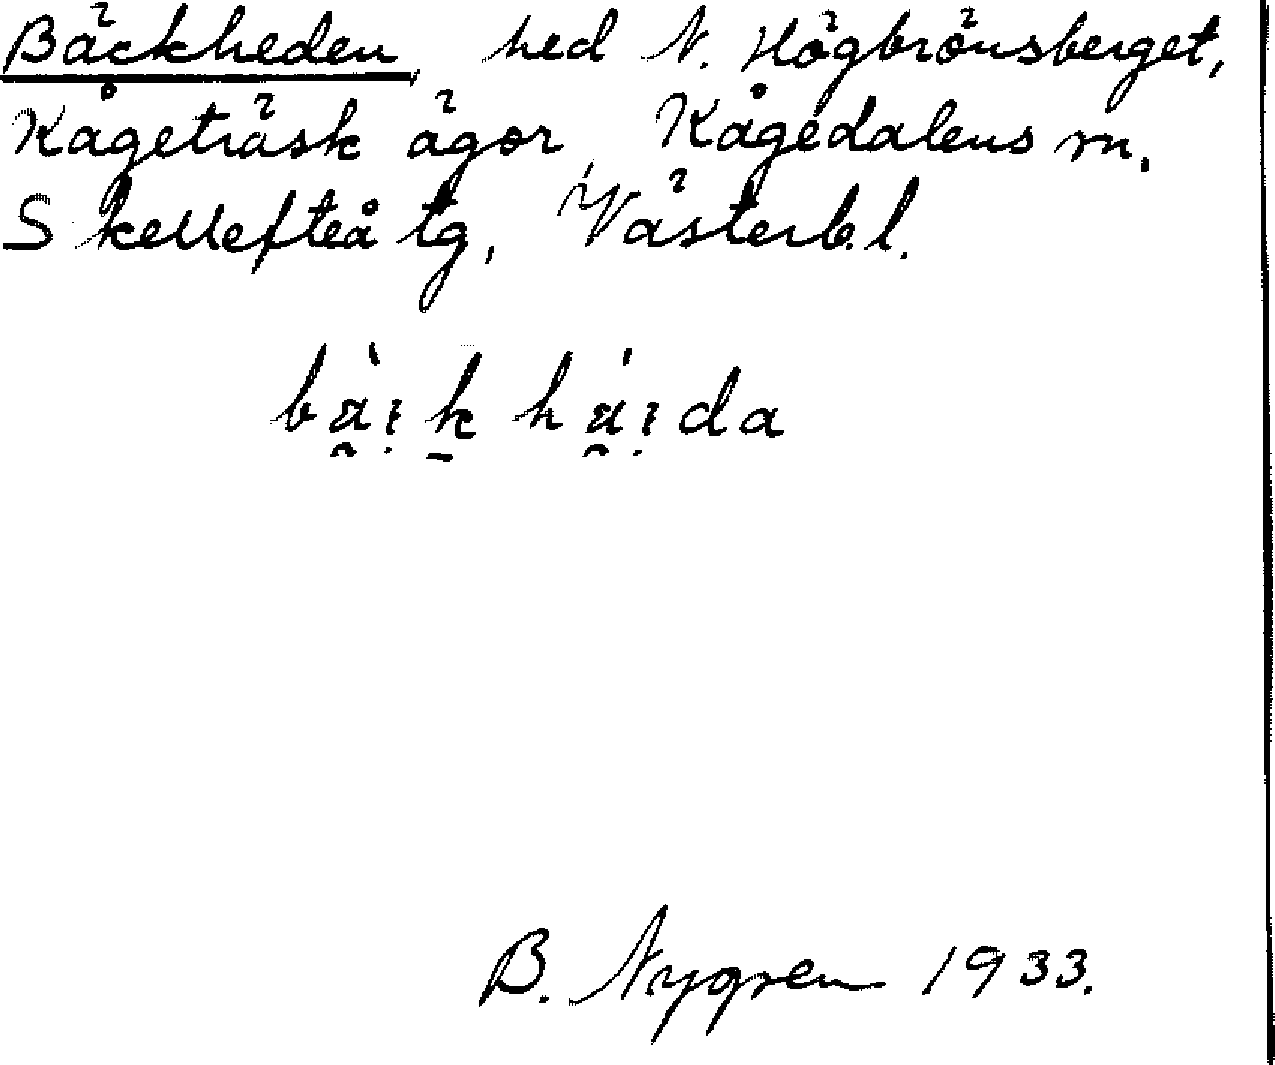 Bäckheden, hed N. Högbrönsberget,
Kågeträsk ägor, Kågedalens m.
Skellefteå tg, Västerb. l.
B. Nygren 1933.